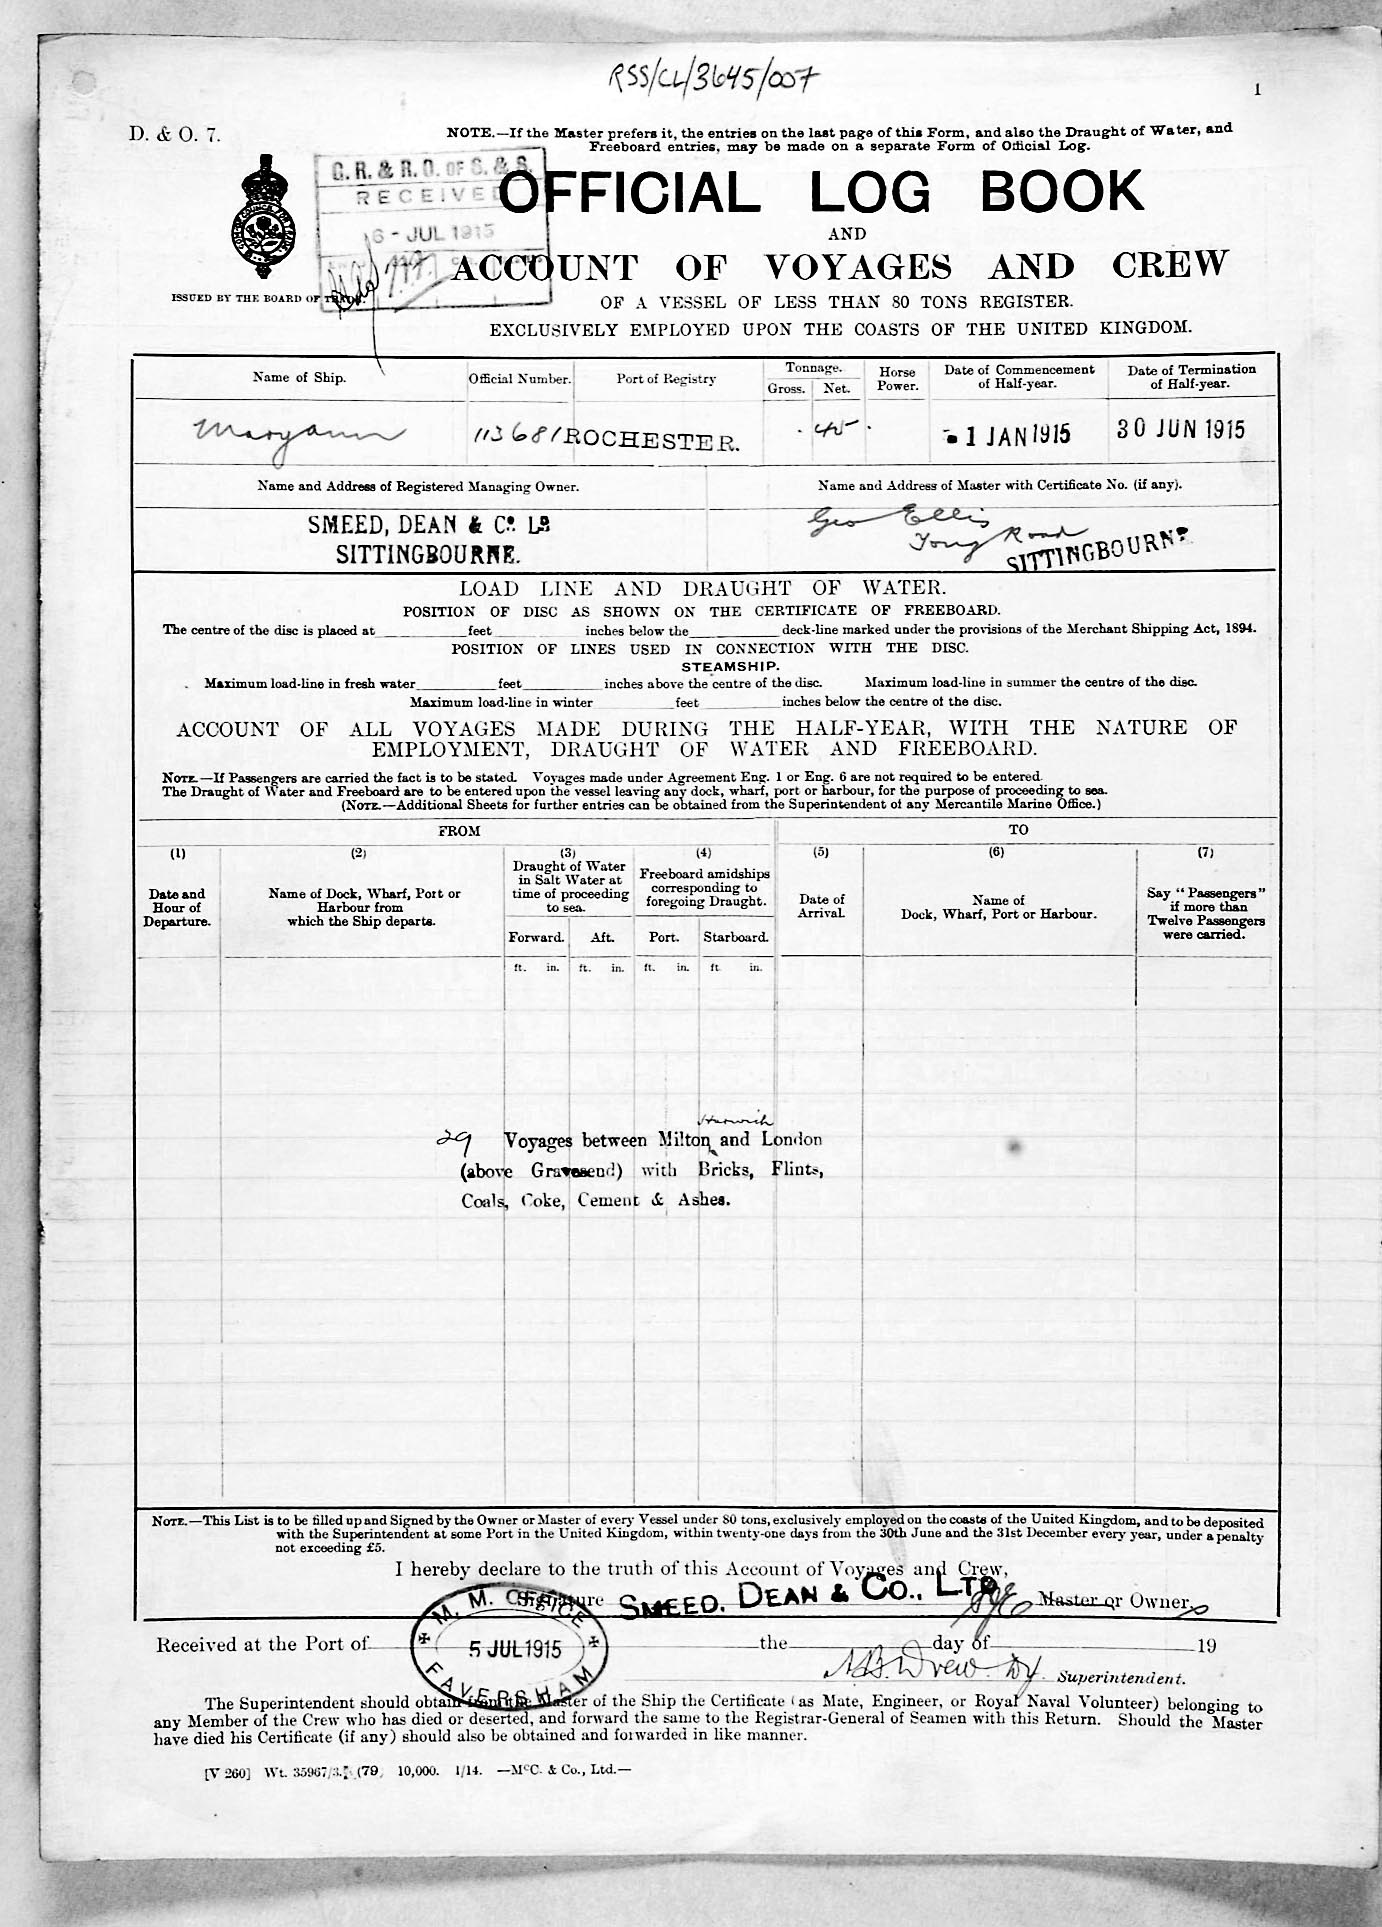 RSS/CL/3645/007
1
D. & O. 7.
NOTE.—If the Master prefers it, the entries on the last page of this Form, and also the Draught of Water, and
Freeboard entries, may be made on a separate Form of Official Log.
C. R. & R. O. OF S. & S.
RECEIVED
6 - JUL 1915
OFFICIAL LOG BOOK
AND
ACCOUNT OF VOYAGES AND CREW
ISSUED BY THE BOARD OF TRADE.
OF A VESSEL OF LESS THAN 80 TONS REGISTER.
EXCLUSIVELY EMPLOYED UPON THE COASTS OF THE UNITED KINGDOM.
Name of Ship.
Official Number.
Port of Registry
Tonnage.
Gross. Net.
Horse Power.
Date of Commencement of Half-year.
Date of Termination of Half-year.
Maryann
113681
ROCHESTER.
45
1 JAN 1915
30 JUN 1915
Name and Address of Registered Managing Owner.
Name and Address of Master with Certificate No. (if any).
SMEED, DEAN & Co. LD
SITTINGBOURNE.
Geo Ellis
Tong Road
SITTINGBOURNE
LOAD LINE AND DRAUGHT OF WATER.
POSITION OF DISC AS SHOWN ON THE CERTIFICATE OF FREEBOARD.
The centre of the disc is placed at feet inches below the deck-line marked under the provisions of the Merchant Shipping Act, 1894.
POSITION OF LINES USED IN CONNECTION WITH THE DISC.
STEAMSHIP.
Maximum load-line in fresh water feet inches above the centre of the disc. Maximum load-line in summer the centre of the disc.
Maximum load-line in winter feet inches below the centre of the disc.
ACCOUNT OF ALL VOYAGES MADE DURING THE HALF-YEAR, WITH THE NATURE OF
EMPLOYMENT, DRAUGHT OF WATER AND FREEBOARD.
NOTE.—If Passengers are carried the fact is to be stated. Voyages made under Agreement Eng. 1 or Eng. 6 are not required to be entered.
The Draught of Water and Freeboard are to be entered upon the vessel leaving any dock, wharf, port or harbour, for the purpose of proceeding to sea.
(NOTE.—Additional Sheets for further entries can be obtained from the Superintendent of any Mercantile Marine Office.)
FROM
TO
(1)
Date and
Hour of
Departure.
(2)
Name of Dock, Wharf, Port or
Harbour from
which the Ship departs.
(3)
Draught of Water
in Salt Water at
time of proceeding
to sea.
Forward. Aft.
(4)
Freeboard amidships
corresponding to
foregoing Draught.
Port. Starboard.
(5)
Date of
Arrival.
(6)
Name of
Dock, Wharf, Port or Harbour.
(7)
Say "Passengers"
if more than
Twelve Passengers
were carried.
ft. in. ft. in. ft. in. ft. in.
Harwich
29 Voyages between Milton and London
(above Gravesend) with Bricks, Flints,
Coals, Coke, Cement & Ashes.
NOTE.—This List is to be filled up and Signed by the Owner or Master of every Vessel under 80 tons, exclusively employed on the coasts of the United Kingdom, and to be deposited
with the Superintendent at some Port in the United Kingdom, within twenty-one days from the 30th June and the 31st December every year, under a penalty
not exceeding £5.
I hereby declare to the truth of this Account of Voyages and Crew,
Signature SMEED, DEAN & CO., LTD Master or Owner
Received at the Port of the day of 19
M. M. OFFICE
5 JUL 1915
FAVERSHAM
Superintendent.
The Superintendent should obtain from the Master of the Ship the Certificate (as Mate, Engineer, or Royal Naval Volunteer) belonging to
any Member of the Crew who has died or deserted, and forward the same to the Registrar-General of Seamen with this Return. Should the Master
have died his Certificate (if any) should also be obtained and forwarded in like manner.
[V 260] Wt. 35967/3. (79) 10,000. 1/14. —McC. & Co., Ltd.—